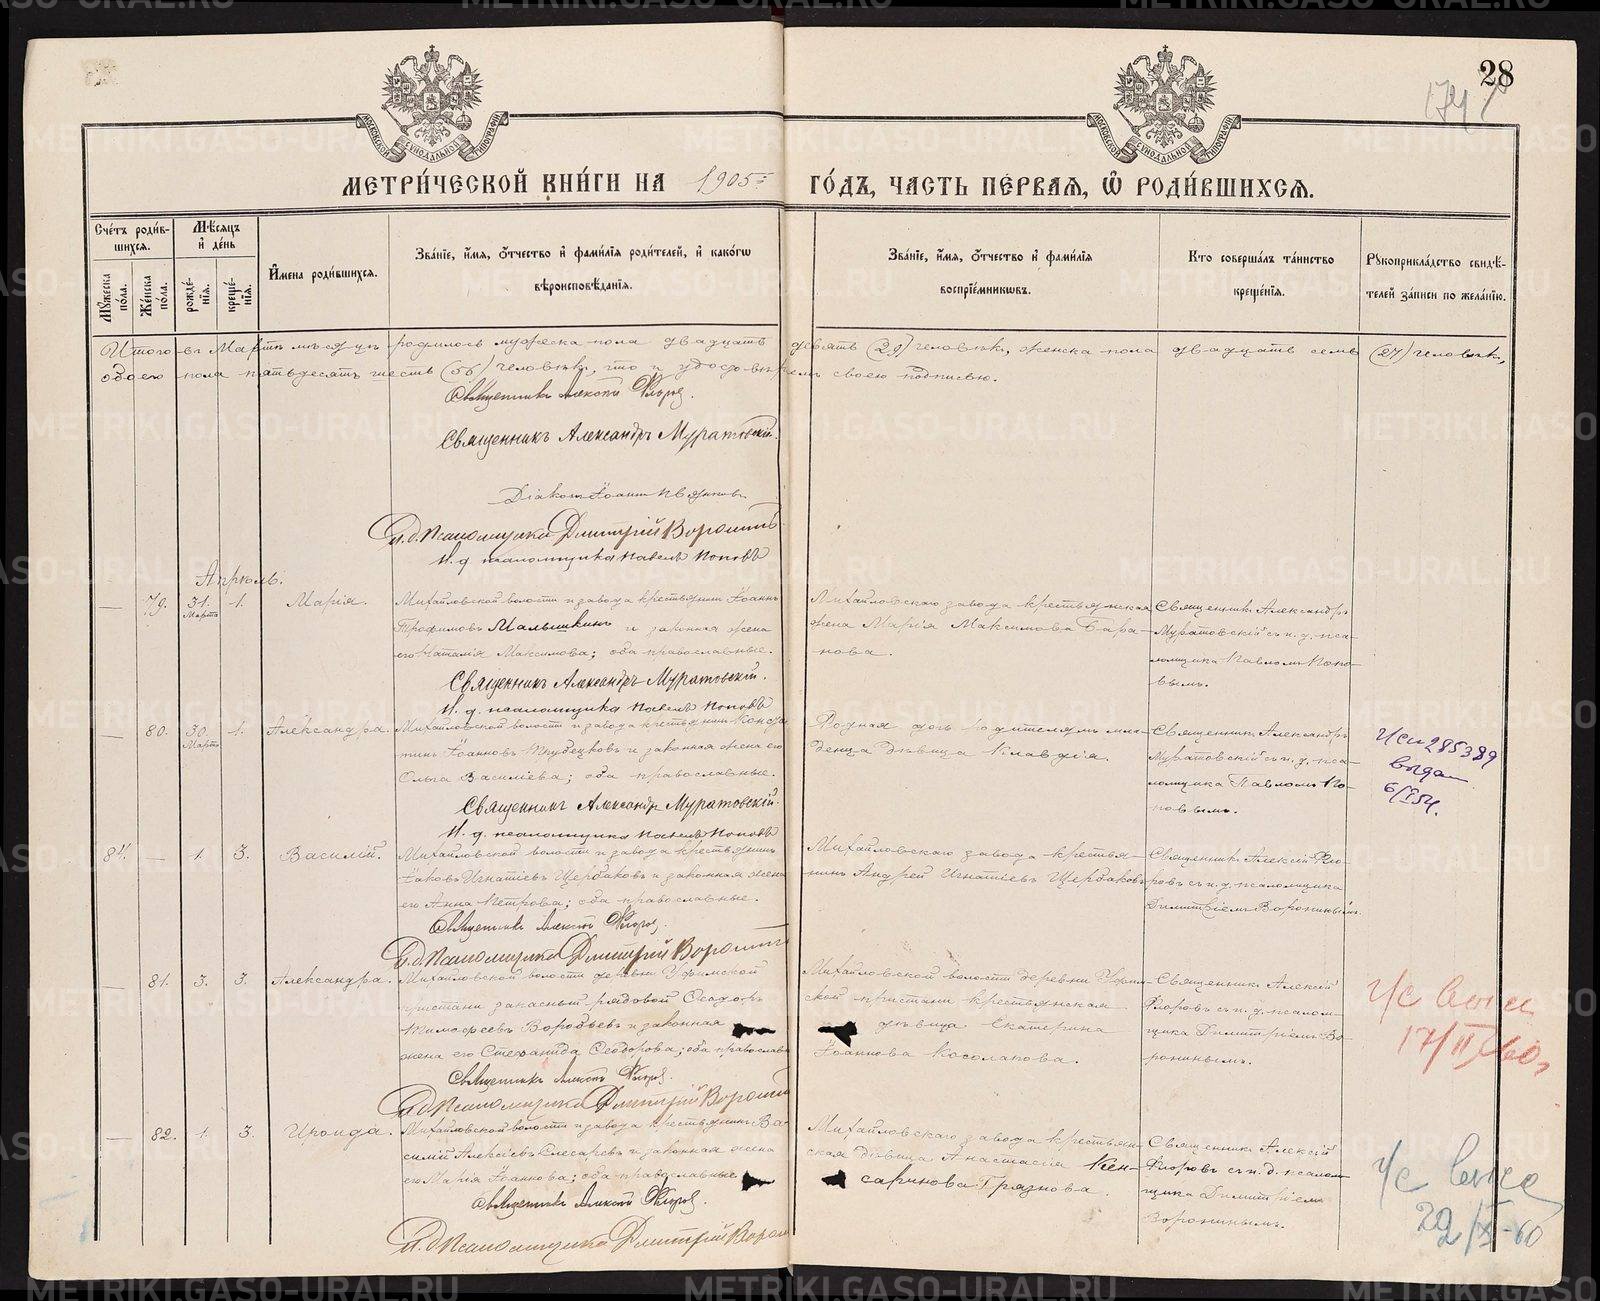 28
174
МОСКОВСКОЙ СѴНОДАЛЬНОЙ ТИПОГРАФІИ
МОСКОВСКОЙ СѴНОДАЛЬНОЙ ТИПОГРАФІИ
МЕТРИ́ЧЕСКОЙ КНИ́ГИ НА 1905 г ГО́ДЪ, ЧАСТЬ ПЕ́РВАЯ, Ѿ РОДИ́ВШИХСЯ.
Сче́тъ роди́в-
шихся.
Мѣ́сяцъ
и́ де́нь
Мꙋ́жеска по́ла.
Же́нска по́ла.
рожде́-
нія.
креще́-
нія.
И́мена роди́вшихся.
Зва́ніе, и́мя, о́тчество и́ фами́лія роди́телей, и́ како́гѡ
вѣроисповѣ́данія.
Зва́ніе, и́мя, о́тчество и́ фами́лія
воспріе́мникѡвъ.
Кто соверша́лъ та́инство
креще́нія.
Рꙋкоприкла́дство свидѣ́-
телей за́писи по жела́нію.
Итого въ Мартѣ мѣсяцѣ родилось мужеска пола двадцать девять (29) человѣкъ, женска пола двадцать семь (27) человѣкъ,
обоего пола пятьдесятъ шесть (56) человѣкъ, что и удостовѣряемъ своею подписью.
Священникъ Алексій Флоровъ.
Священникъ Александръ Муратовскій.
Діаконъ Іоаннъ
И. д. Псаломщика Дмитрій Воронинъ
И. д. псаломщика Павелъ Поповъ
Апрѣль.
— 79. 31. Марта 1. Марія.
Михайловской волости и завода крестьянинъ Іоаннъ
Трофимовъ Малышкинъ и законная жена
его Наталія Максимова; оба православные.
Священникъ Александръ Муратовскій.
И. д. псаломщика Павелъ Поповъ
Михайловскаго завода крестьянская
жена Марія Максимова Бара-
нова.
Священникъ Александръ
Муратовскій съ и. д. пса-
ломщика Павломъ Попо-
вымъ.
— 80. 30. Марта 1. Александра.
Михайловской волости и завода крестьянинъ Констан-
тинъ Іоанновъ и законная жена его
Ольга Василіева; оба православные.
Священникъ Александръ Муратовскій.
И. д. псаломщика Павелъ Поповъ
Родная дочь родителямъ мла-
денца дѣвица Клавдія.
Священникъ Александръ
Муратовскій съ и. д. пса-
ломщика Павломъ По-
повымъ.
285389
выдан
6/I 54.
84. — 1. 3. Василій.
Михайловской волости и завода крестьянинъ
Іаковъ Игнатіевъ Щербаковъ и законная жена
его Анна Петрова; оба православные.
Священникъ Алексій Флоровъ.
И. д. Псаломщика Дмитрій Воронинъ
Михайловскаго завода крестья-
нинъ Андрей Игнатіевъ Щербаковъ
Священникъ Алексій Фло-
ровъ съ и. д. псаломщика
Димитріемъ Воронинымъ.
— 81. 3. 3. Александра.
Михайловской волости деревни Уфимской
пристани запасный рядовой Ѳеодоръ
Тимофеевъ Воробьевъ и законная
жена его Стефанида Ѳеодорова; оба православн
Священникъ Алексій Флоровъ.
И. д. Псаломщика Дмитрій Воронинъ
Михайловской волости деревни Уфим-
ской пристани крестьянская
дѣвица Екатерина
Іоаннова Косолапова.
Священникъ Алексій
Флоровъ съ и. д. псалом-
щика Димитріемъ Во-
ронинымъ.
г/с
17/II 60 г.
— 82. 1. 3. Ираида.
Михайловской волости и завода крестьянинъ Ва-
силій Алексіевъ Слесаревъ и законная жена
его Марія Іоаннова; оба православные
Священникъ Алексій Флоровъ.
И. д. Псаломщика Дмитрій Ворон
Михайловскаго завода крестьян-
ская дѣвица Анастасія Ксен-
Грязнова.
Священникъ Алексій
Флоровъ съ и. д. псалом-
щика Димитріемъ
Воронинымъ.
г/с
29/XI-60
METRIKI.GASO-URAL.RU